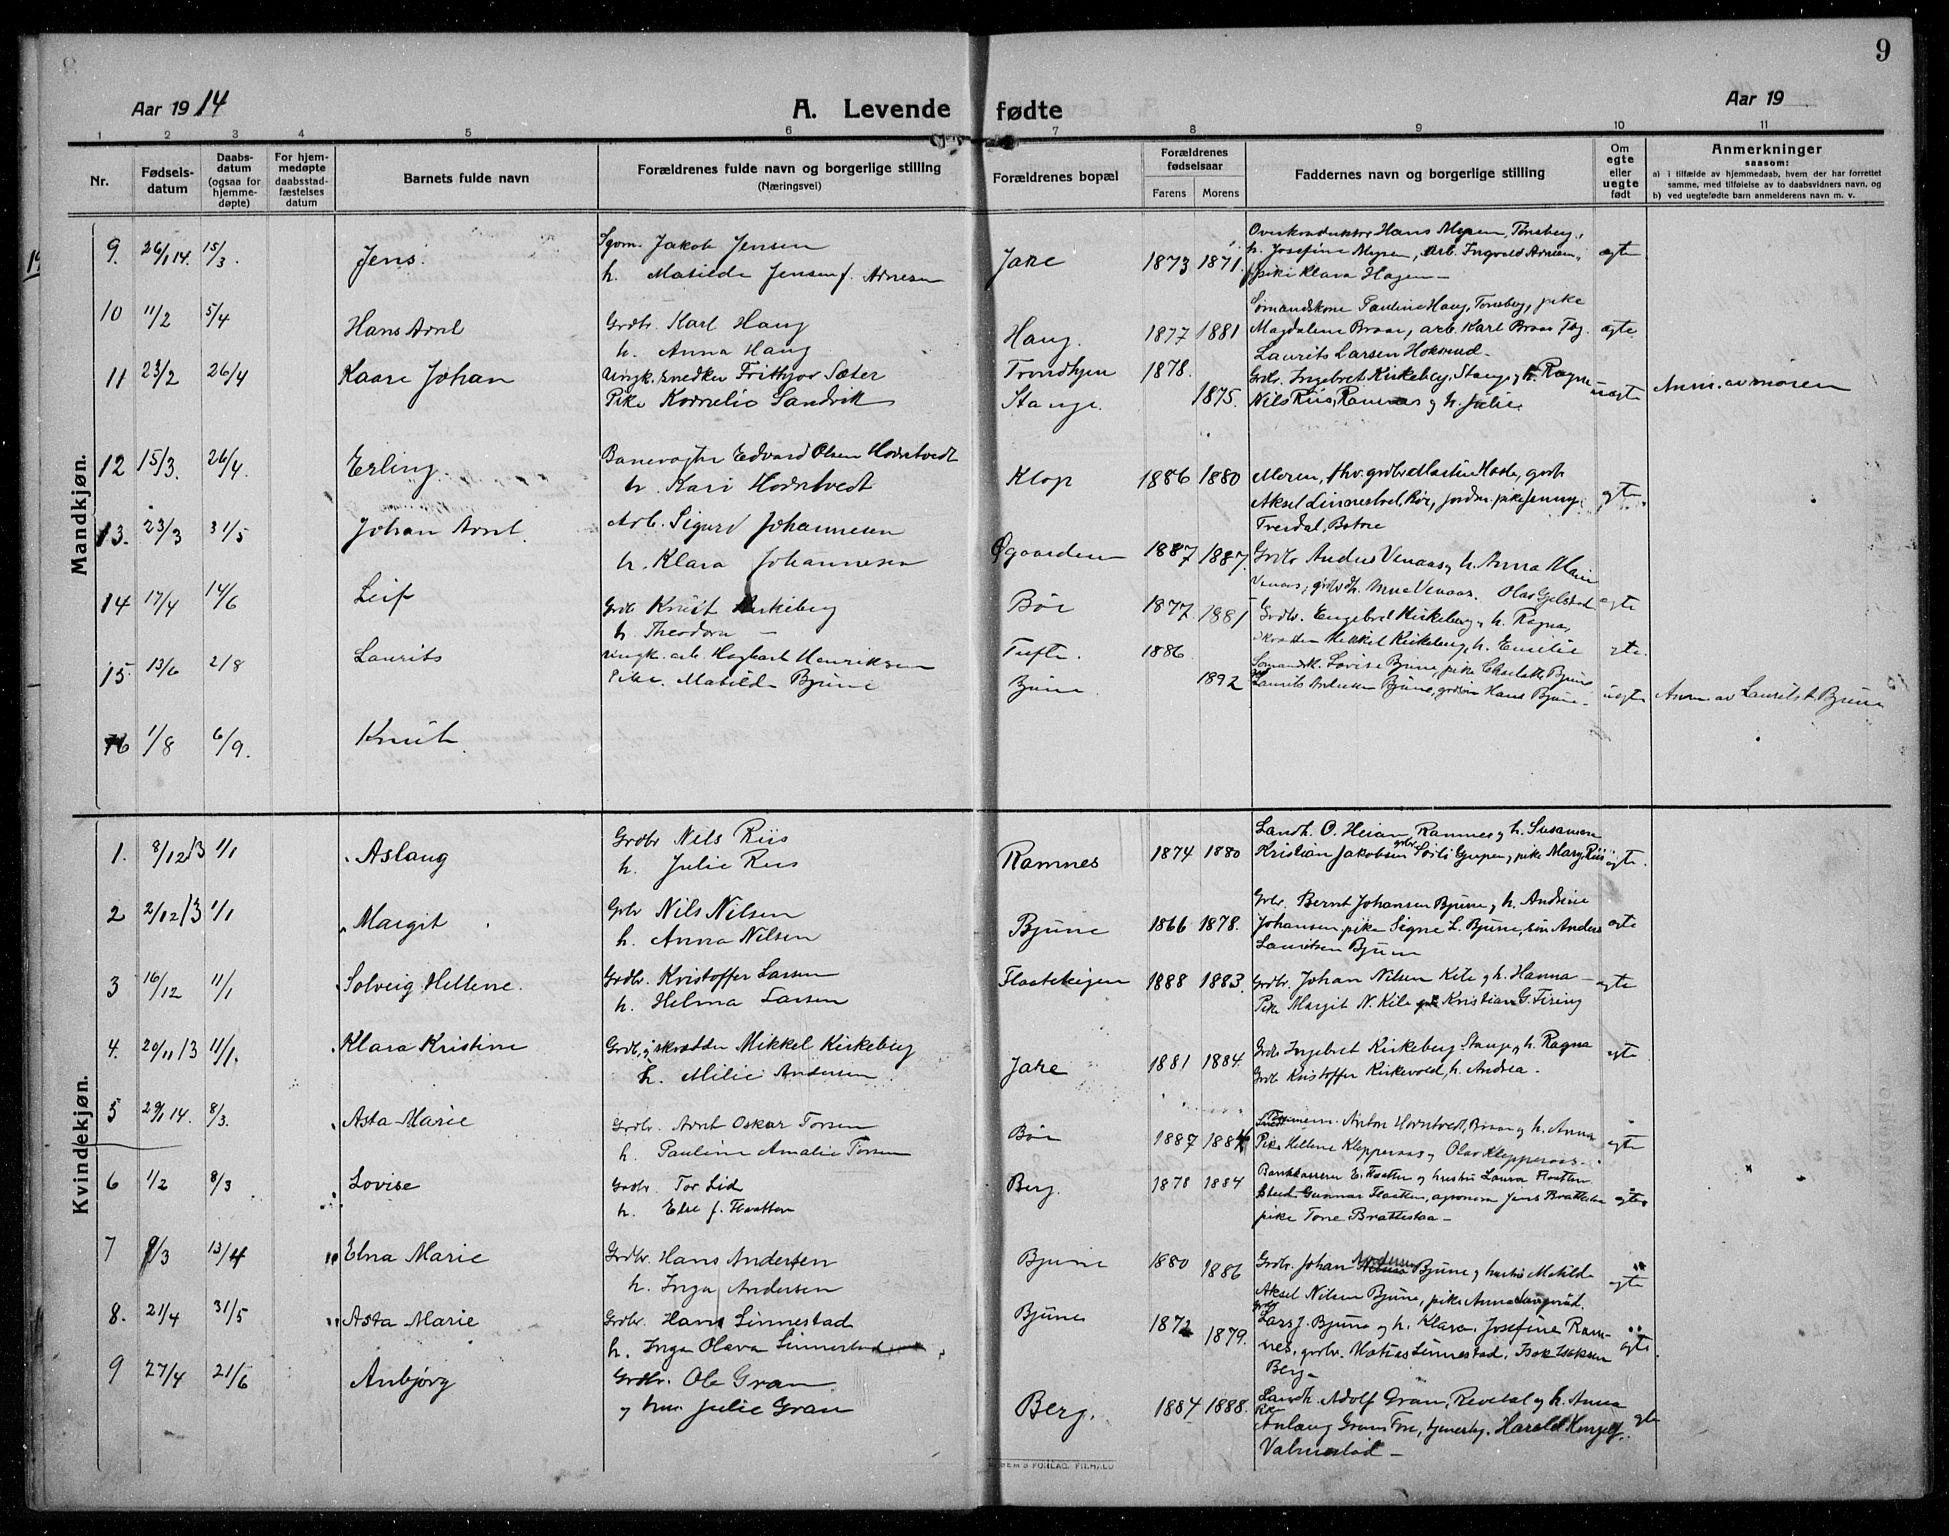 9
Aar 1914
A. Levende fødte
Aar 19
1 2 3 4 5 6 7 8 9 10 11
Nr.
Fødsels-
datum
Daabs-
datum
(ogsaa for
hjemme-
døpte)
For hjem-
medøpte
daabsstad-
fæstelses
datum
Barnets fulde navn
Forældrenes fulde navn og borgerlige stilling
(Næringsvei)
Forældrenes bopæl
Forældrenes
fødselsaar
Farens Morens
Faddernes navn og borgerlige stilling
Om
egte
eller
uegte
født
Anmerkninger
saasom:
a) i tilfælde av hjemmedaab, hvem der har forrettet
samme, med tilføielse av to daabsvidners navn, og
b) ved uegtefødte barn anmelderens navn m. v.
Mandkjøn.
9. 26/1 14. 15/3. Jens. Jakob Jensen
h. Matilde Jensen f. Arnesen
Jare 1873 1871
Overkonduktør Hans Myren, Tønsberg,
h. Josefine Myren, arb. Ingvald Arnesen,
pike Klara Hagen – egte
10 11/2 5/4 Hans Arnt Grdbr. Karl Haug
h. Anna Haug
Haug. 1877 1881
Sømandskone Pauline Haug, Tønsberg, pike
Magdalene Braar, arb. Karl Braar Tbg.
Laurits Larsen Hoksrud – egte
11 23/2 26/4 Kaare Johan Ungk. snedker Frithjov Sæter
Pike Kornelie Sandvik
Trondhjem 1878.
Stange. 1875.
Grdbr. Ingebret Kirkeberg, Stange, h. Ragna
Nils Riis, Ramnes og h. Julie. uegte Anm. av moren
12 15/3. 26/4. Erling. Banevogter Edvard Olsen Hortvedt
h. Kari Hortvedt
Klop 1886 1880
Moren, fhv. grdbr Martin Hasle, grdb.
Aksel Linnestad, Rør, jordm. pike Jenny
Tresdal, Botne egte
13. 23/3 31/5 Johan Arnt. Arb. Sigurd Johannesen
h. Klara Johannesen
Øgaarden 1887 1887.
Grdb. Anders Venaas, h. Anna Marie
Venaas, Venaas. Olav Gjelstad egte
14 17/4 14/6 Leif Grdb Knut Kirkeberg
h. Theodora –
Bør 1877 1881
Grdbr. Engebret Kirkeberg, h. Ragna,
Mikkel Kirkeberg, h. Emilie
15. 13/6 2/8 Laurits Ungk. arb. Hagbart Henriksen
Pike. Matilde Bjune
Tufte. 1886.
Bjune. 1892
Sømandsk. Lovise Bjune, pike Charlotte Bjune
Laurits Andersen Bjune, Hans Bjune – uegte Anm av Laurits A. Bjune
16 1/8 6/9. Knut.
Kvindekjøn.
1. 8/12 13 1/1 Aslaug Grdbr Nils Riis
h. Julie Riis
Ramnes 1874 1880
Landh. O. Heian, Ramnes og h. Susanna
Kristian Jakobsen pike Mary Riis egte.
2 2/12 13 1/1 Margit Grbr Nils Nilsen
h. Anna Nilsen
Bjune 1866 1878.
Grbr. Bernt Johansen Bjune og h. Andrine
Johansen pike Signe L. Bjune, søn Anders
Lauritsen Bjune egte
3 16/12 11/1 Solveig Hellene. Grdbr. Kristoffer Larsen
h. Helma Larsen
Flaateteigen 1888 1883.
Grdbr. Johan Nilsen Kile og h. Hanna –
Pike Margit N. Kile Kristian G. Firing egte
4. 20/11 13 11/1. Klara Kristine Grdb. og skrædder Mikkel Kirkeberg
h. Milie Andersen
Jare 1881 1884.
Grdb Ingebret Kirkeberg, Stange og h. Ragna
Grdb Kristoffer Kirkevold, h. Andrea. egte
5 29/1 14. 8/3. Asta Marie Grdbr. Arnt Oskar Torsen
h. Pauline Amalie Torsen
Bør 1887 1884
Anton Hortvedt, Braar og h. Anna
Pike Hellene Klepperaas og Olav Klepperaas. egte
6 1/2 8/3 Lovise Grdbr. Tor Lid
h. Else f. Flaatten
Berg. 1878 1884
Bankkasserer E. Flaatten og hustru Laura Flaatten
Stud. Gunnar Flaatten, agronom Jens Brattestaa
pike Tone Brattestaa – egte
7 8/3 13/4 Elna Marie Grdbr. Hans Andersen
h. Inga Andersen
Bjune 1880 1886
Grdbr. Johan Andersen Bjune og hustru Matilde
Aksel Nilsen Bjune, pike Anna egte
8. 21/4 31/5 Asta Marie Grdbr. Hans Linnestad
h. Inga Olava Linnestad
Bjune 1872 1879.
Lars J. Bjune og h. Klara, Josefine Ram-
nes, grdbr. Matias Linnestad, Isak Isaksen
Berg – egte.
9 27/4 21/6 Anbjørg Grdbr. Ole Gran
og hus. Julie Gran
Berg. 1884 1888.
Landh. Adolf Gran, Revetal og h. Anna
Aslaug Gran Harald
Valmestad – egte
FORLAG, FILIAL